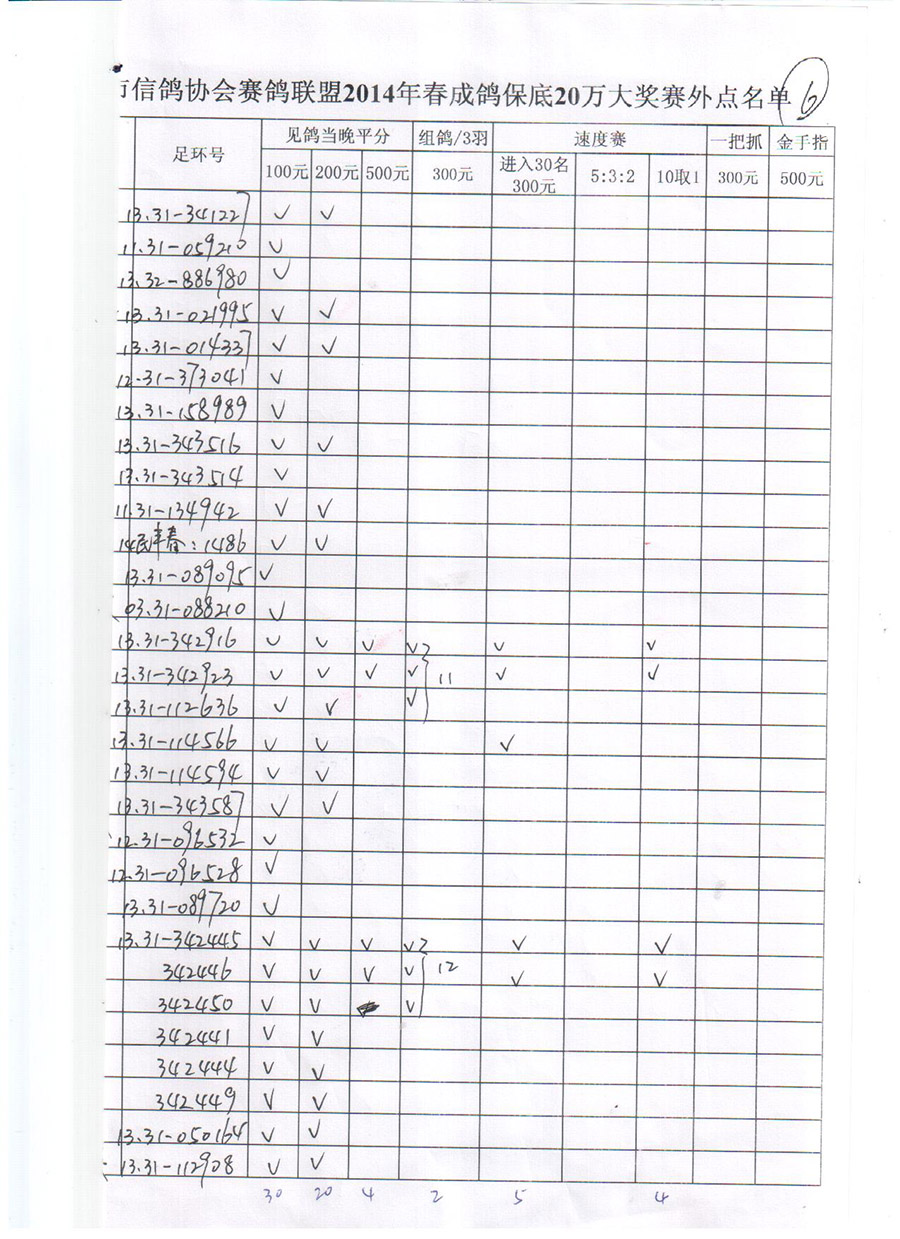 信鸽协会赛鸽联盟2014年春成鸽保底20万大奖赛外点名单 6
足环号 见鸽当晚平分 组鸽/3羽 速度赛 一把抓 金手指
100元 200元 500元 300元 进入30名 300元 5:3:2 10取1 300元 500元
13.31-341227 ✓ ✓
11.31-059210 ✓
13.32-886980 ✓
13.31-021995 ✓ ✓
13.31-014337 ✓ ✓
12.31-373041 ✓
13.31-158989 ✓
13.31-343516 ✓ ✓
13.31-343514 ✓
11.31-134942 ✓ ✓
1486 ✓ ✓
13.31-089095 ✓
03.31-088210 ✓
13.31-342916 ✓ ✓ ✓ ✓ ✓ ✓
13.31-342923 ✓ ✓ ✓ ✓ 11 ✓ ✓
13.31-112636 ✓ ✓ ✓
13.31-114566 ✓ ✓ ✓
13.31-114594 ✓ ✓
13.31-343587 ✓ ✓
12.31-096532 ✓
12.31-096528 ✓
13.31-089720 ✓
13.31-342445 ✓ ✓ ✓ ✓ ✓ ✓
342446 ✓ ✓ ✓ ✓ 12 ✓ ✓
342450 ✓ ✓ ✓
342441 ✓ ✓
342444 ✓ ✓
342449 ✓ ✓
13.31-050164 ✓ ✓
13.31-112908 ✓ ✓
30 20 4 2 5 4